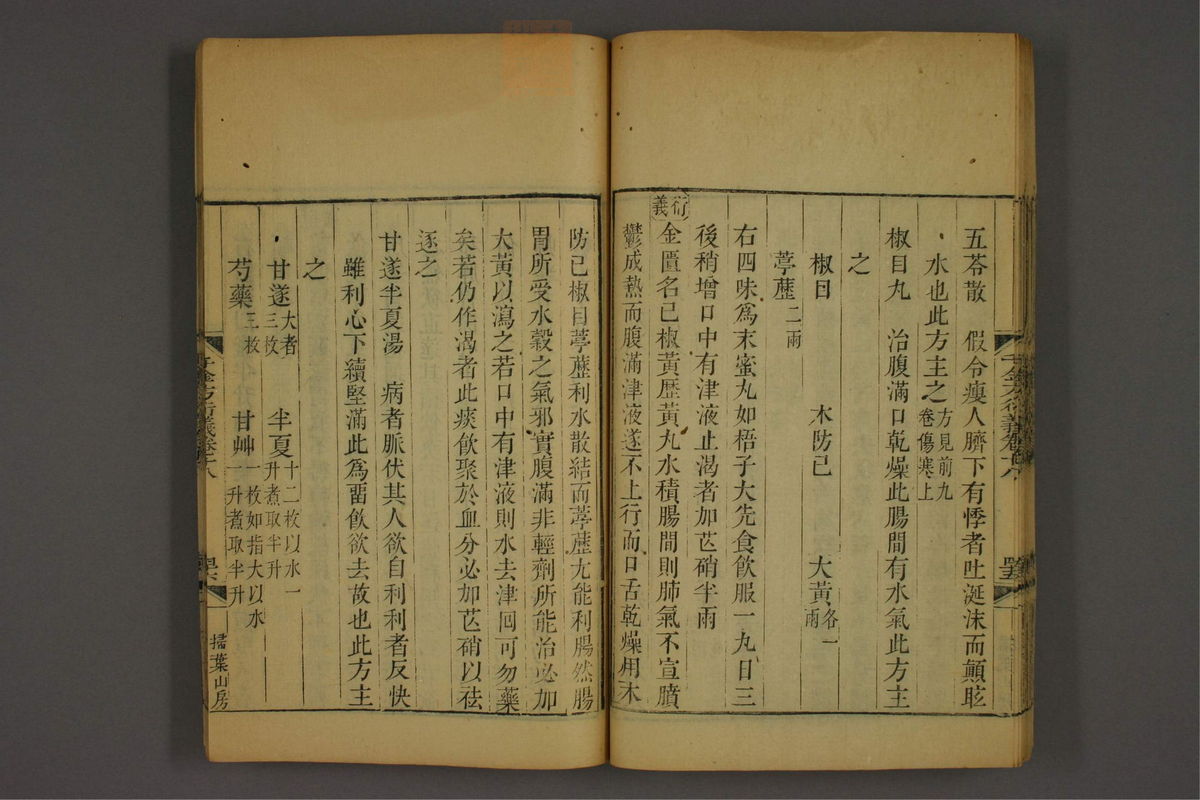 五苓散　假令瘦人臍下有悸者吐涎沫而顛眩
水也此方主之方見前九卷傷寒上
椒目丸　治腹滿口乾燥此腸間有水氣此方主
之
椒目　木防己　大黃各一兩
葶藶二兩
右四味爲末蜜丸如梧子大先食飲服一丸日三
後稍增口中有津液止渴者加芒硝半兩
衍義
金匱名己椒黃歷黃丸水積腸間則肺氣不宣膹
鬱成熱而腹滿津液遂不上行而口舌乾燥用木
防己椒目葶藶利水散結而葶藶尤能利腸然腸
胃所受水穀之氣邪實腹滿非輕劑所能治必加
大黃以瀉之若口中有津液則水去津回可勿藥
矣若仍作渴者此痰飲聚於血分必加芒硝以祛
逐之
甘遂半夏湯　病者脈伏其人欲自利利者反快
雖利心下續堅滿此爲畱飲欲去故也此方主
之
甘遂大者三枚　半夏十二枚以水一升煮取半升
芍藥三枚　甘艸一枚如指大以水一升煮取半升
千金方衍義卷十八
掃葉山房